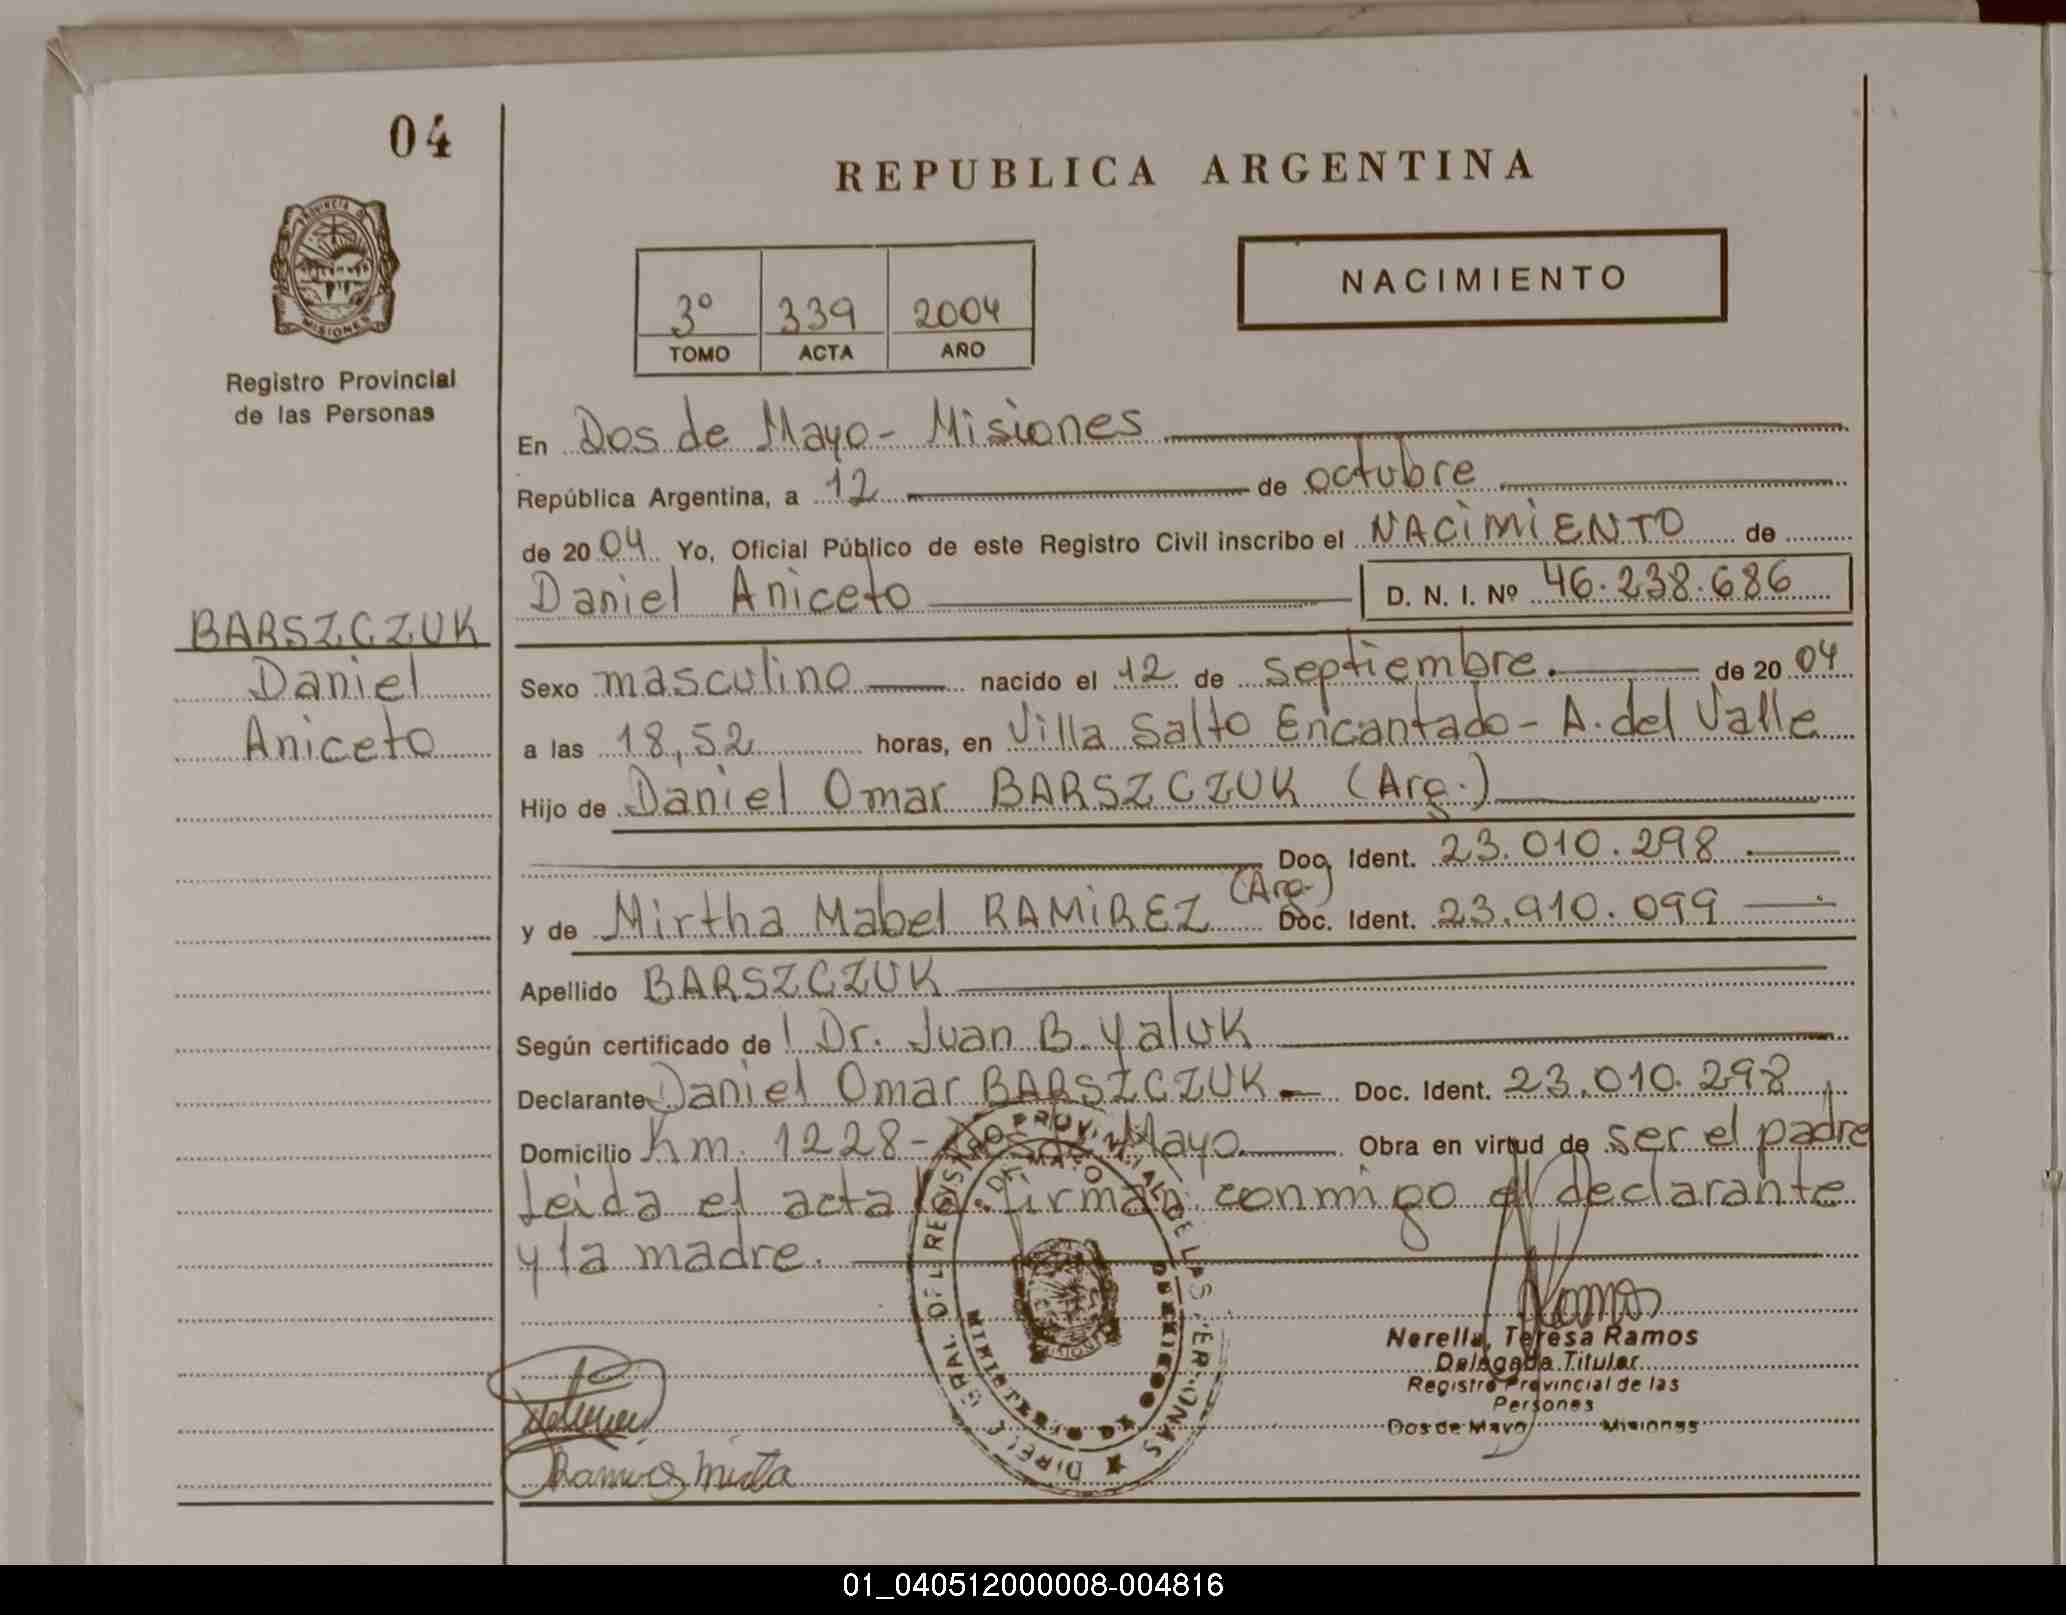 04
REPUBLICA ARGENTINA
PROVINCIA DE
MISIONES
Registro Provincial
de las Personas
3º 339 2004
TOMO ACTA AÑO
NACIMIENTO
En Dos de Mayo - Misiones
República Argentina, a 12 de octubre
de 2004 Yo, Oficial Público de este Registro Civil inscribo el NACIMIENTO de
Daniel Aniceto D. N. I. Nº 46.238.686
BARSZCZUK
Daniel
Aniceto
Sexo masculino nacido el 12 de septiembre. de 2004
a las 18,52 horas, en Villa Salto Encantado - A. del Valle
Hijo de Daniel Omar BARSZCZUK (Arg.)
Doc. Ident. 23.010.298
y de Mirtha Mabel RAMIREZ (Arg.) Doc. Ident. 23.910.099
Apellido BARSZCZUK
Según certificado de Dr. Juan B. Yaluk
Declarante Daniel Omar BARSZCZUK Doc. Ident. 23.010.298
Domicilio Km. 1228 - Dos de Mayo Obra en virtud de ser el padre
Leida el acta la firman conmigo el declarante
y la madre.
Nerella, Teresa Ramos
Delegada Titular
Registro Provincial de las
Personas
Dos de Mayo Misiones
01_040512000008-004816